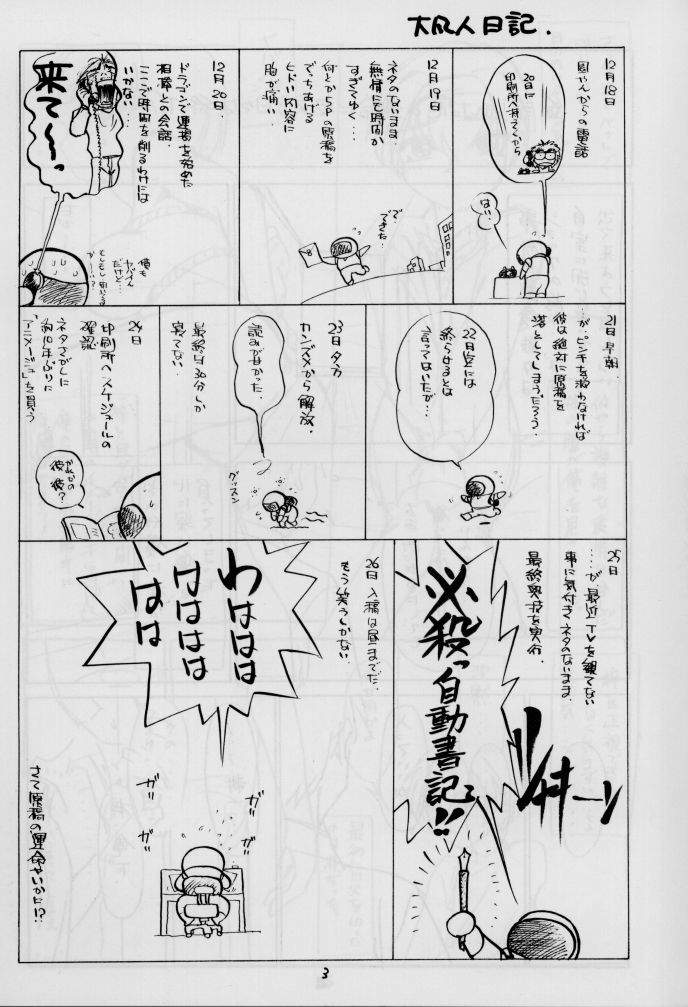 大凡人日記.
12月18日
因やんからの電話
20日に
印刷所へ持ってくから
はい…
12月19日
ネタのないまま
無情にも時間か
すぎてゆく…
何とか5Pの原稿を
でっちあげる
ヒドい内容に
胸が痛い
で、
できた…
12月20日.
ドラゴンで連載を始めた
相棒との会話.
ここで時間を削るわけには
いかない…
来て〜〜っ
俺も
ヤバイん
だけど…
21日 早朝.
が、ピンチを救わなければ
彼は絶対に原稿を
落としてしまうだろう.
22日中には
終らせるとは
言ってはいたが…
23日 夕方
カンヅメから解放.
最終は30分しか
寝てない.
読みが甘かった.
グッスン
24日
印刷所へスケジュールの
確認
ネタさがしに
「アニメージュ」を買う
彼彼?
25日
…が、最近TVを観てない
事に気付きネタのないまま.
最終奥技を実行.
必殺っ自動書記!!
ジャキーン
26日 入稿は昼までだ.
もう笑うしかない.
わははは
けははは
はは
ガガガ
ガガガ
ガガガ
ガガガ
さて原稿の運命やいかに!?
3